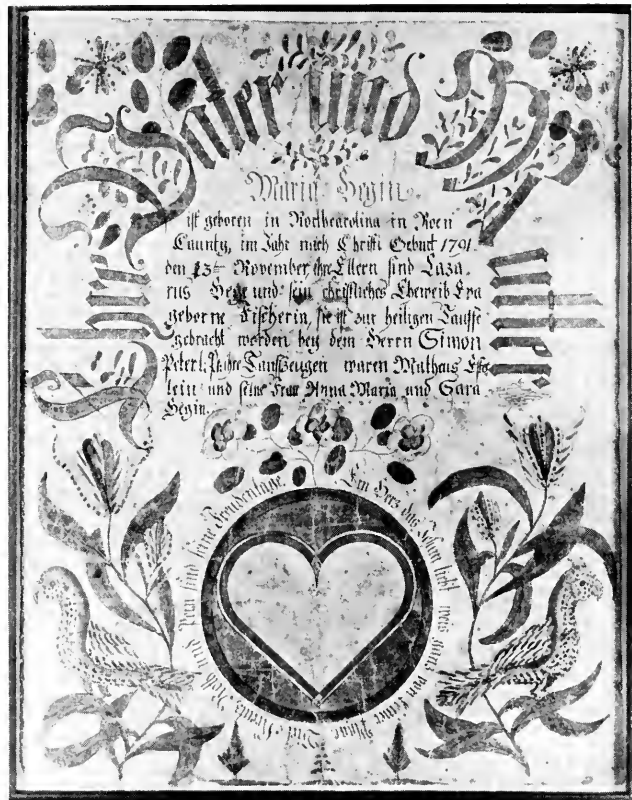 Vater und
Maria Hegin.
ist geboren in Northcarolina in Roen
Caunty, im Jahr nach Christi Geburt 1791.
den 13ten November, ihre Eltern sind Laza-
rus Hege und sein christliches Eheweib Eva
geborne Fischerin, sie ist zur heiligen Tauffe
gebracht worden bey dem Herrn Simon
Peterl: Taufzeugen waren Matheus
lein und seine Frau Anna Maria und Sara
Hegin.
Ein Herz das Jesum liebt weis von seiner
Und Noth und Pein sind seine Freudentage